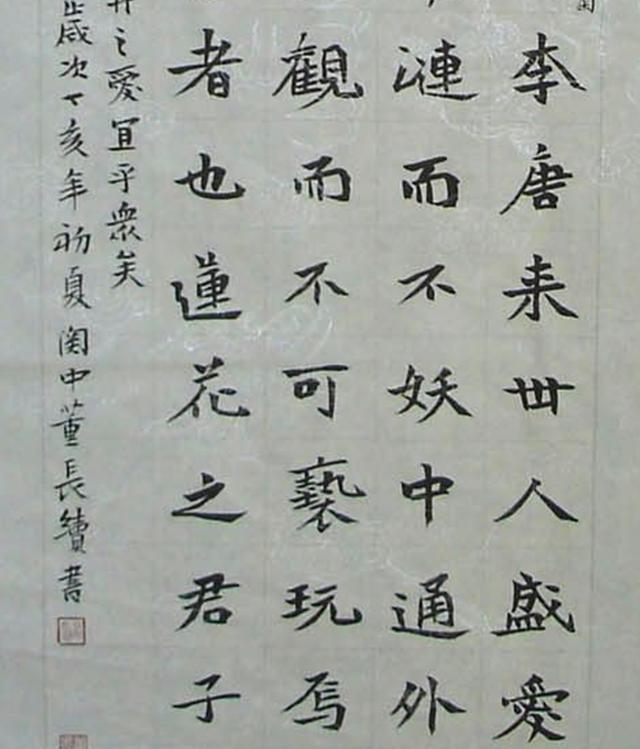 李唐来世人盛愛
漣而不妖中通外
觀而不可褻玩焉
者也蓮花之君子
丹之愛宜乎衆矣
歲次丁亥年初夏関中董長績書